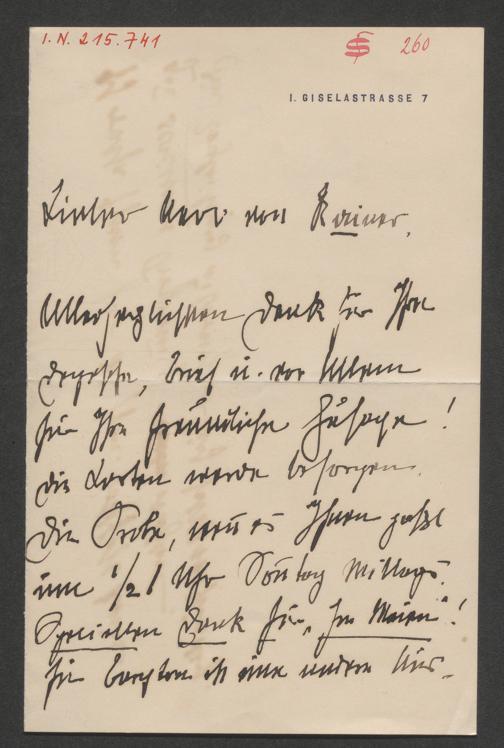 I. N. 215.741
260
I. GISELASTRASSE 7
Lieber Herr von Rainer,
Allerherzlichsten Dank für Ihre
Depesche, Brief u. vor Allem
für Ihre freundliche Zusage!
Die Karten werde besorgen.
Die Probe, wenn es Ihnen paßt
um 1/2 1 Uhr Sonntag Mittags.
Speciellen Dank für "Im Maien"!
Für ist eine andere